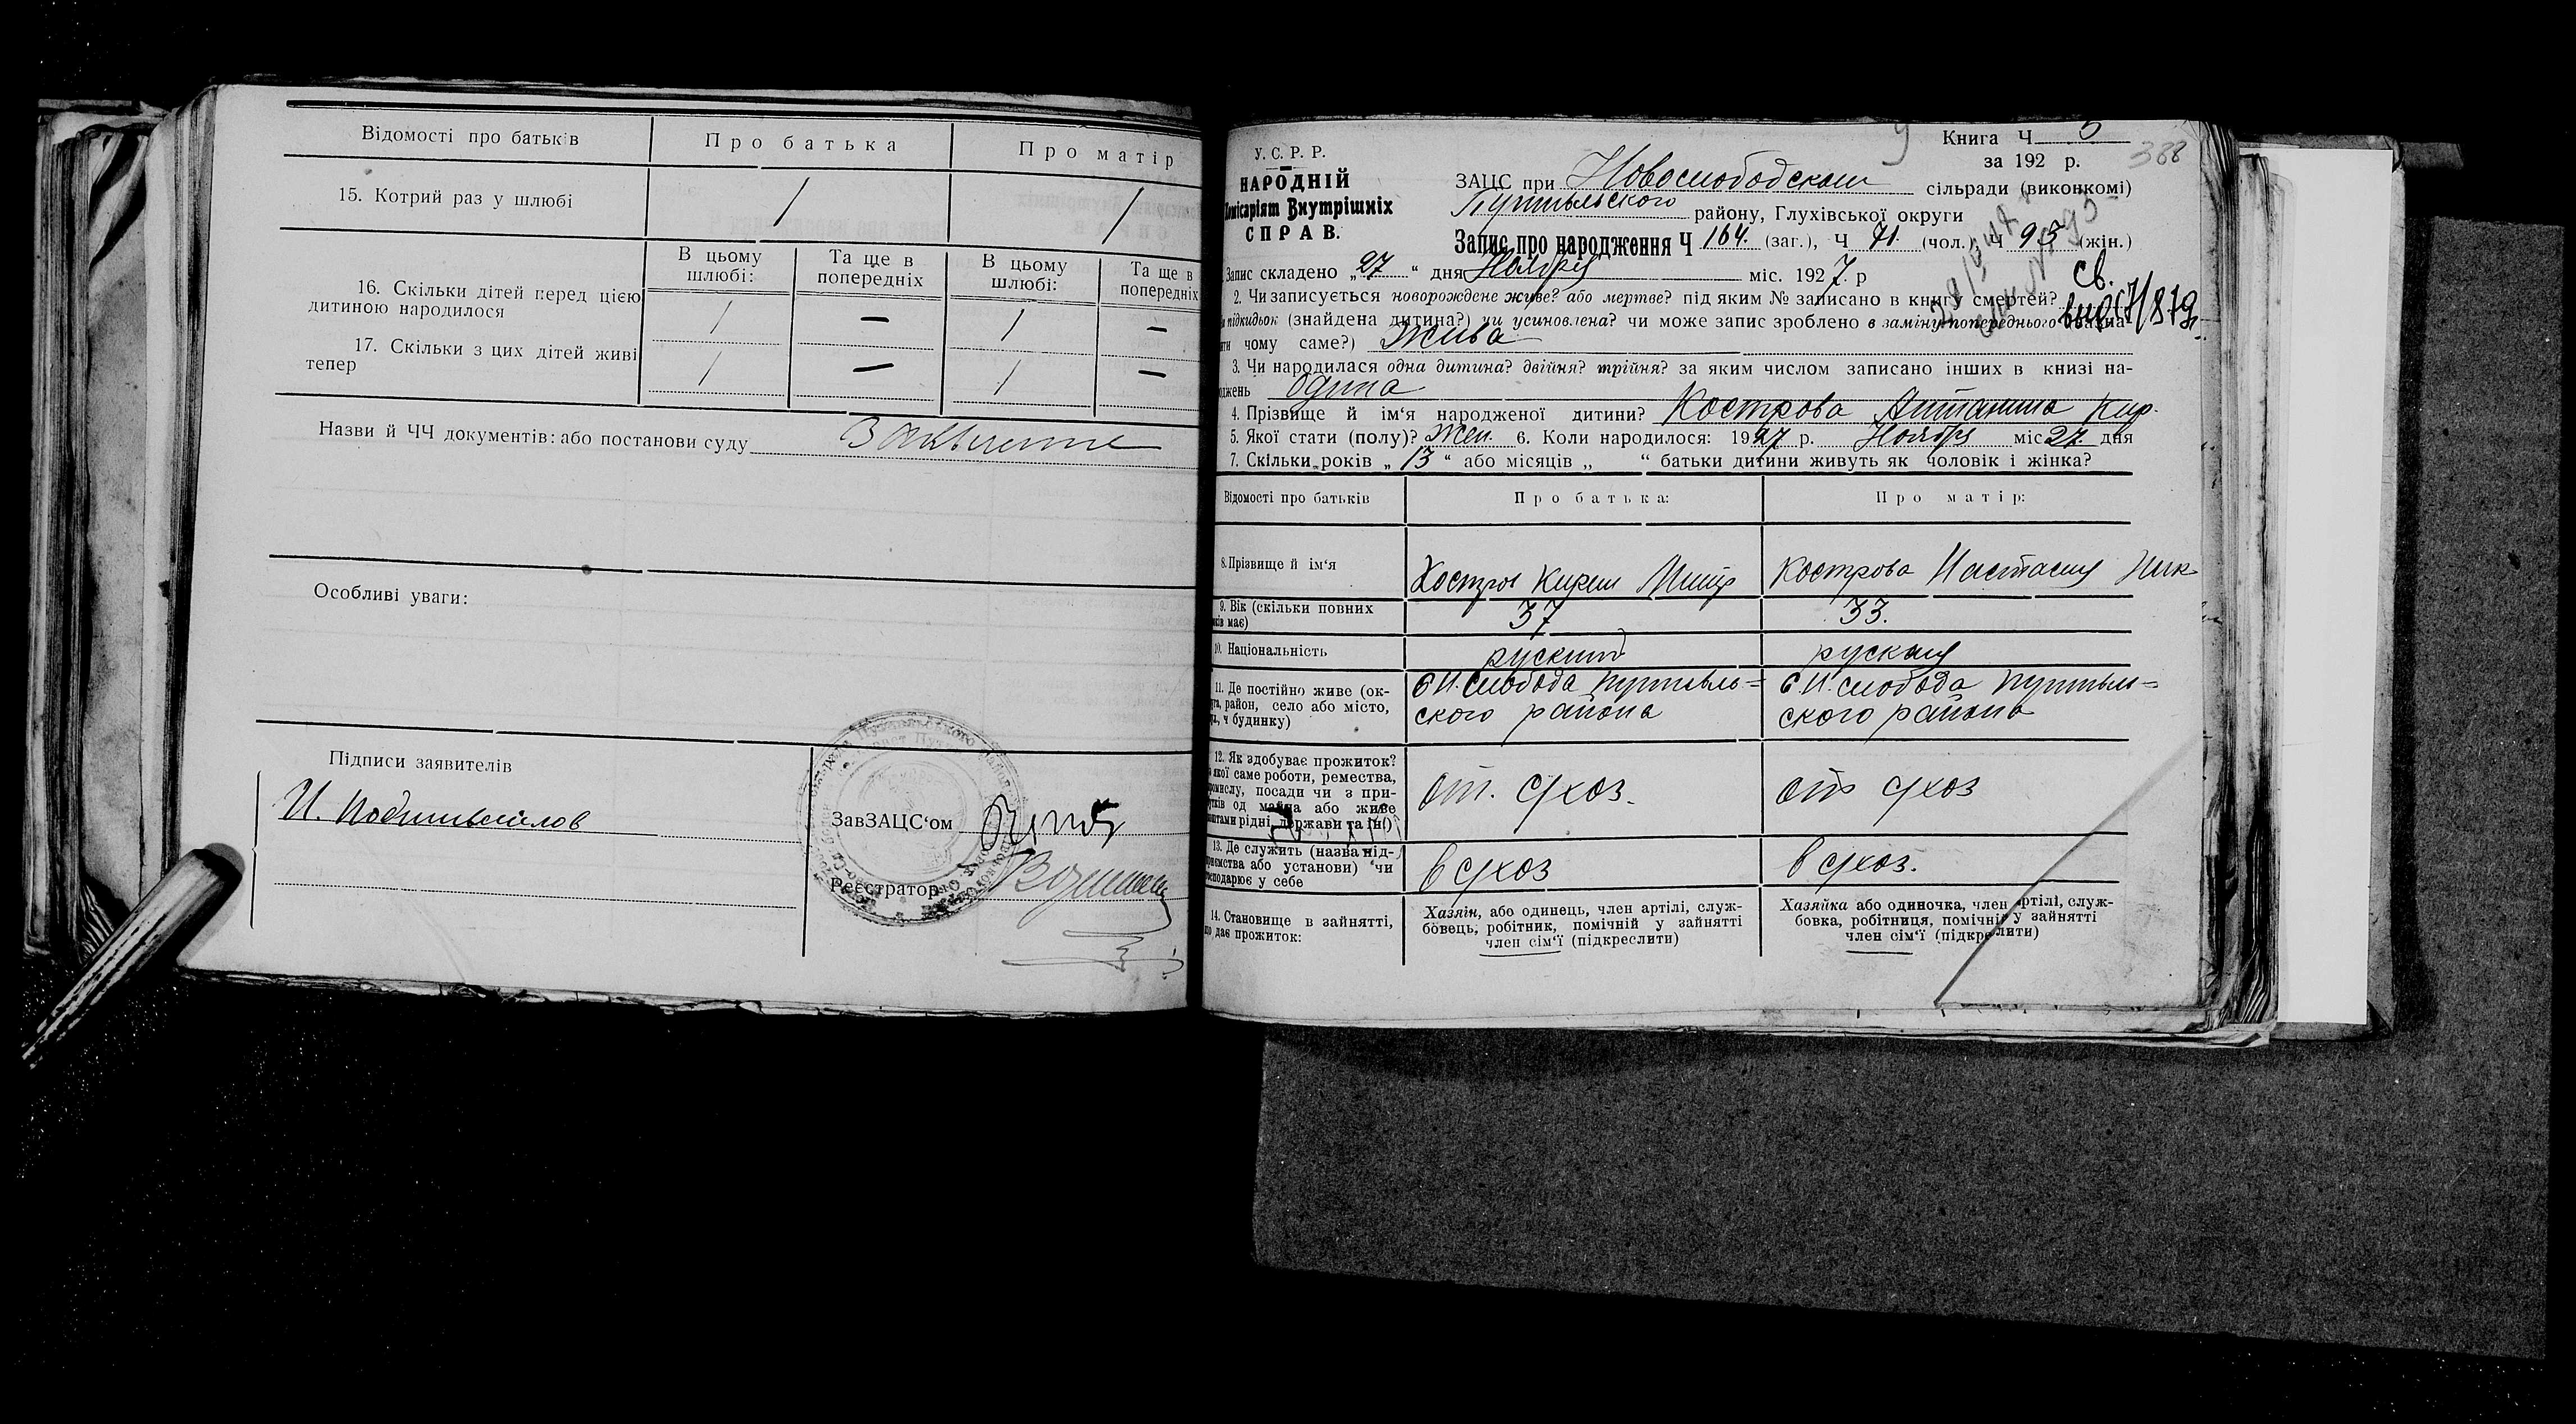 Відомості про батьків
Про батька
Про матір
15. Котрий раз у шлюбі
/
/
В цьому шлюбі:
Та ще в попередніх
В цьому шлюбі:
Та ще в попередніх
16. Скільки дітей перед цією
дитиною народилося
/ — / —
17. Скільки з цих дітей живі
тепер
/ — / —
Назви й ЧЧ документів: або постанови суду
Особливі уваги:
Підписи заявителів
ЗавЗАЦС‘ом
Реєстратор
Книга Ч 5
388
за 192 р.
У. С. Р. Р.
НАРОДНІЙ
Комісаріят Внутрішніх
СПРАВ.
ЗАЦС при Новослободском сільради (виконкомі)
Путивльского району, Глухівської округи
Запис про народження Ч 164. (заг.), Ч 71. (чол.), Ч 93 (жін.)
Запис складено „27“ дня Ноября міс. 1927. р
св.
2. Чи записується новорождене живе? або мертве? під яким № записано в книгу смертей?
підкидьок (знайдена дитина?) чи усиновлена? чи може запис зроблено в заміну попереднього
чому саме?) Жива
3. Чи народилася одна дитина? двійня? трійня? за яким числом записано інших в книзі на-
роджень одина
4. Прізвище й ім‘я народженої дитини? Кострова Антанина Кир.
5. Якої стати (полу)? Жен. 6. Коли народилося: 1927 р. Ноября міс 27 дня
7. Скільки років „13“ або місяців „ “ батьки дитини живуть як чоловік і жінка?
Відомості про батьків
Про батька:
Про матір:
8. Прізвище й ім‘я
Костров Кирил Митр
Кострова Настасия Ник
9. Вік (скільки повних
років має)
37
33.
10. Національність
руский
руская
11. Де постійно живе (ок-
руга, район, село або місто,
вул., ч будинку)
с Н. слобода Путивль=
ского района
с Н. слобода Путивл=
ского района
12. Як здобуває прожиток?
з якої саме роботи, ремества,
промислу, посади чи з при-
бутків од майна або живе
коштами рідні, держави та ін.)
от. с/хоз.
от с/хоз
13. Де служить (назва під-
приємства або установи) чи
господарює у себе
в с/хоз
в с/хоз.
14. Становище в зайнятті,
що дає прожиток:
Хазяїн, або одинець, член артілі, служ-
бовець, робітник, помічній у зайнятті
член сім‘ї (підкреслити)
Хазяйка або одиночка, член артілі, служ-
бовка, робітниця, помічниця у зайнятті
член сім‘ї (підкреслити)